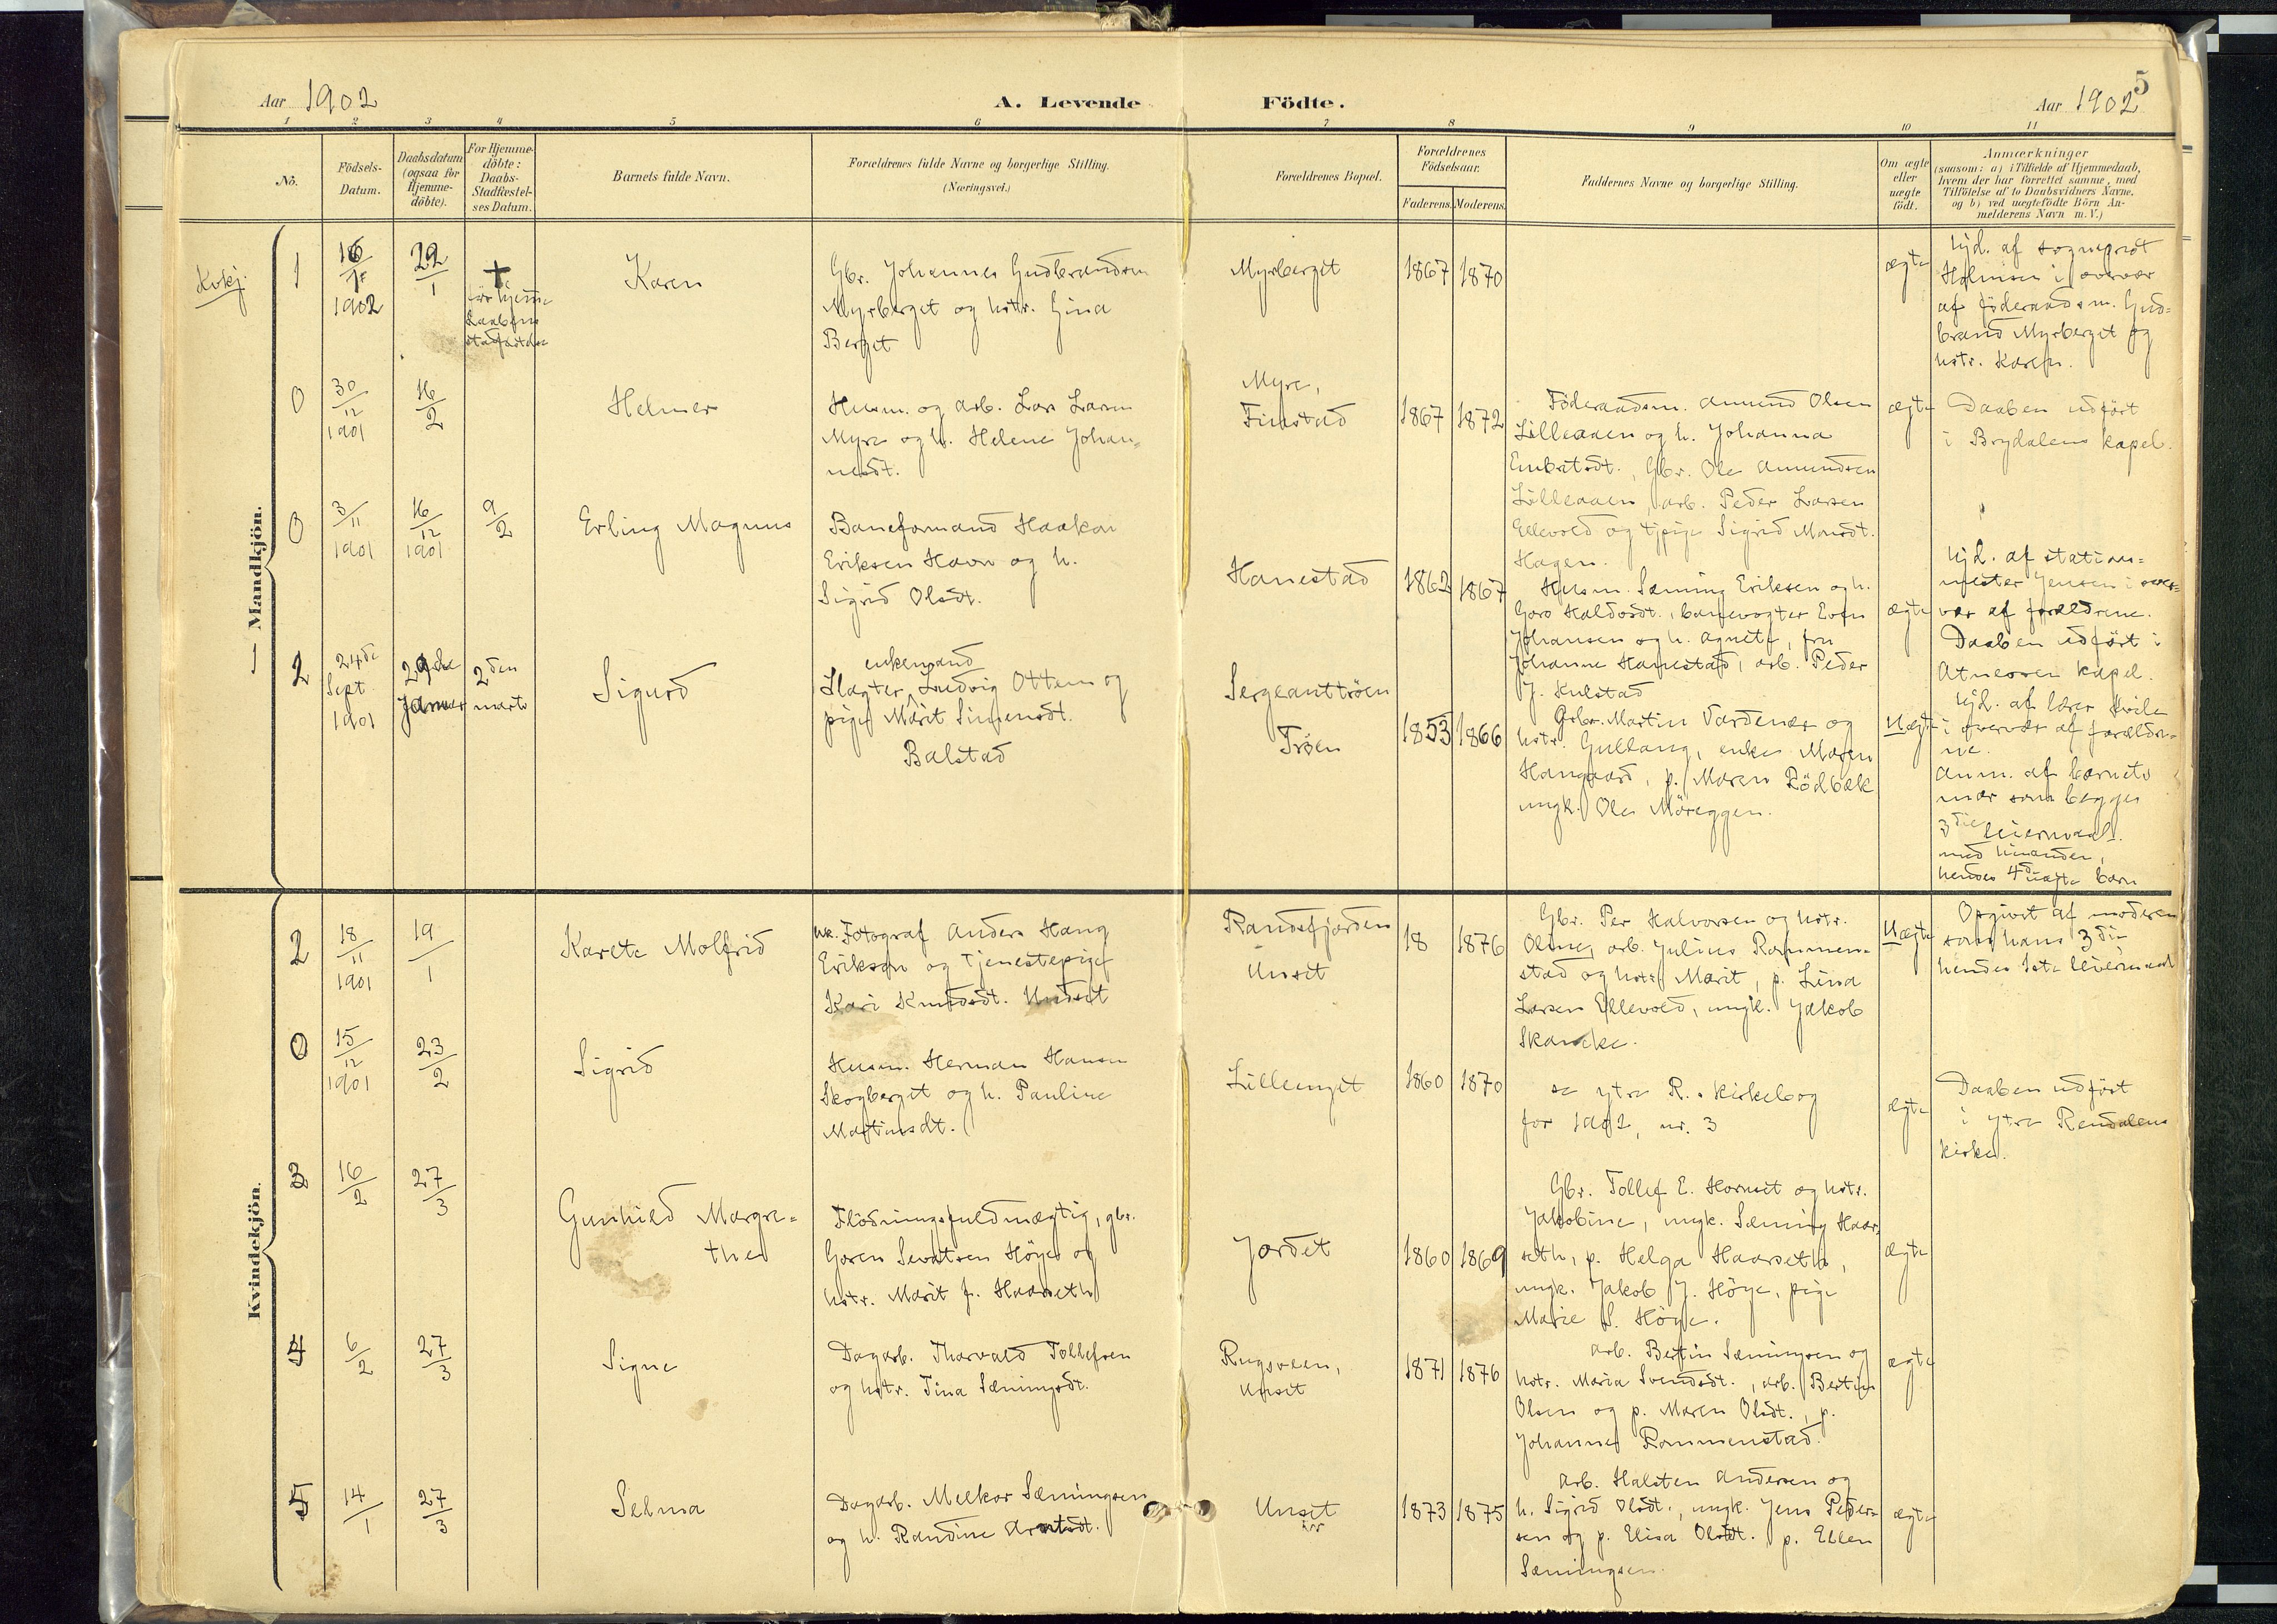 5
Aar 1902
A. Levende Födte.
Aar 1902
1 2 3 4 5 6 7 8 9 10 11
No.
Födsels-Datum.
Daabsdatum (ogsaa for Hjemme-döbte).
For Hjemme-döbte: Daabs-Stadfæstel-ses Datum.
Barnets fulde Navn.
Forældrenes fulde Navne og borgerlige Stilling.
(Næringsvei.)
Forældrenes Bopæl.
Forældrenes Fødselsaar.
Faderens. Moderens.
Faddernes Navne og borgerlige Stilling.
Om ægte eller uægte födt.
Anmærkninger
(saasom: a) i Tilfælde af Hjemmedaab,
hvem der har forrettet samme, med
Tilföielse af to Daabsvidners Navne,
og b) ved uægtefödte Börn An-
melderens Navn m. V.)
Mandkjön.
Kvkj.
1
16/1 1902
22/1
†
før hjemme
daabens
stadfæstelse
Karen
Gbr. Johannes Gudbrandsen
Myrberget og hstr. Gina
Berget
Myrberget
1867 1870
ægte
Hjd. af sogneprest
Holmsen i overvær
af föderaadsm. Gud=
brand Myrberget og
hstr. Karen.
0
30/12 1901
16/2
Helmer
Husm. og arb. Lars Larsen
Myre og h. Helene Johan=
nesdt.
Myre,
Finstad
1867 1872
Föderaadsm. Amund Olsen
Lilleaaen og h. Johanna
Embretsdt., Gbr. Ole Amundsen
Lilleaaen, arb. Peder Larsen
Ellevold og tjpige Sigrid
Hagen.
ægte
Daaben udført
i Brydalens kapel.
0
3/11 1901
16/12 1901
9/2
Erling Magnus
Baneformand Haakon
Eriksen Havn og h.
Sigrid Olsdt.
Hanestad
1862 1867
Husm. Sæming Eriksen og h.
Goro Haldosdt., banevogter Even
Johansen og h. Agnete, fru
Johanne Hanestad, arb. Peder
J. Kulstad
ægte
Hjd. af stations=
mester Jensen i over=
vær af forældrene.
Daaben udført i
Atneosen kapel.
2
24de Sept 1901
29de Januar
2den marts
Sigurd
enkemand
Slagter, Ludvig Ottem og
pige Marit Simensdt.
Balstad
Sergeanttröen
Tröen
1853 1866
Gbr. Martin Vardenær og
hstr. Gullaug, enke Maren
Haugaard, p. Maren Rödbæk
ungk. Ole Möreggen.
Uægte
Hjd. af lærer Hvile
i overvær af forældre=
ne.
Anm. af barnets
mor som begges
3die leiermaal
med hinanden,
hendes 4de uægte barn
Kvindekjön.
2
18/11 1901
19/1
Karete Molfrid
uk. Fotograf Anders Haug
Eriksen og tjenestepige
Kari Knudsdt. Undset
Randsfjorden
Unset
18 1876
Gbr. Per Halvorsen og hstr.
Oline, arb. Julius Rommen=
stad og hstr. Marit, p. Lina
Larsen Ellevold, ungk. Jakob
Skancke.
Uægte
Opgivet af moderen
som hans 3die
hendes 1ste leiermaal
0
15/12 1901
23/2
Sigrid
Husm. Herman Hansen
Skogberget og h. Pauline
Martinsdt.
Lillenget
1860 1870
se ytre R. kirkebog
for 1902, nr. 3
ægte
Daaben udført
i Ytre Rendalens
kirke.
3
16/2
27/3
Gunhild Margre=
the
Flödningsfuldmægtig, gbr.
Goren Sevatsen Höye og
hstr. Marit f. Haarseth
Jordet
1860 1869
Gbr. Tollef E. Hornset og hstr.
Jakobine, ungk. Sæming Haar=
seth, p. Helga Haarseth,
ungk. Jakob J. Höye, pige
Marie S. Höye.
ægte
4
6/2
27/3
Signe
Dagarb. Thorvald Tollefsen
og hstr. Tina Sæmingsdt.
Rugsveen,
Unset
1871 1876
Arb. Bertin Sæmingsen og
hstr. Maria Svendsdt., arb. Bertin
Olsen og p. Maren Olsdt., p.
Johanne Rommenstad.
ægte
5
14/1
27/3
Selma
Dagarb. Melkor Sæmingsen
og h. Randine Arntsdt.
Unset
1873 1875
Arb. Halsten Andersen og
h. Sigrid Olsdt., ungk. Jens Peder=
sen og p. Elisa Olsdt. p. Ellen
Sæmingsen.
ægte